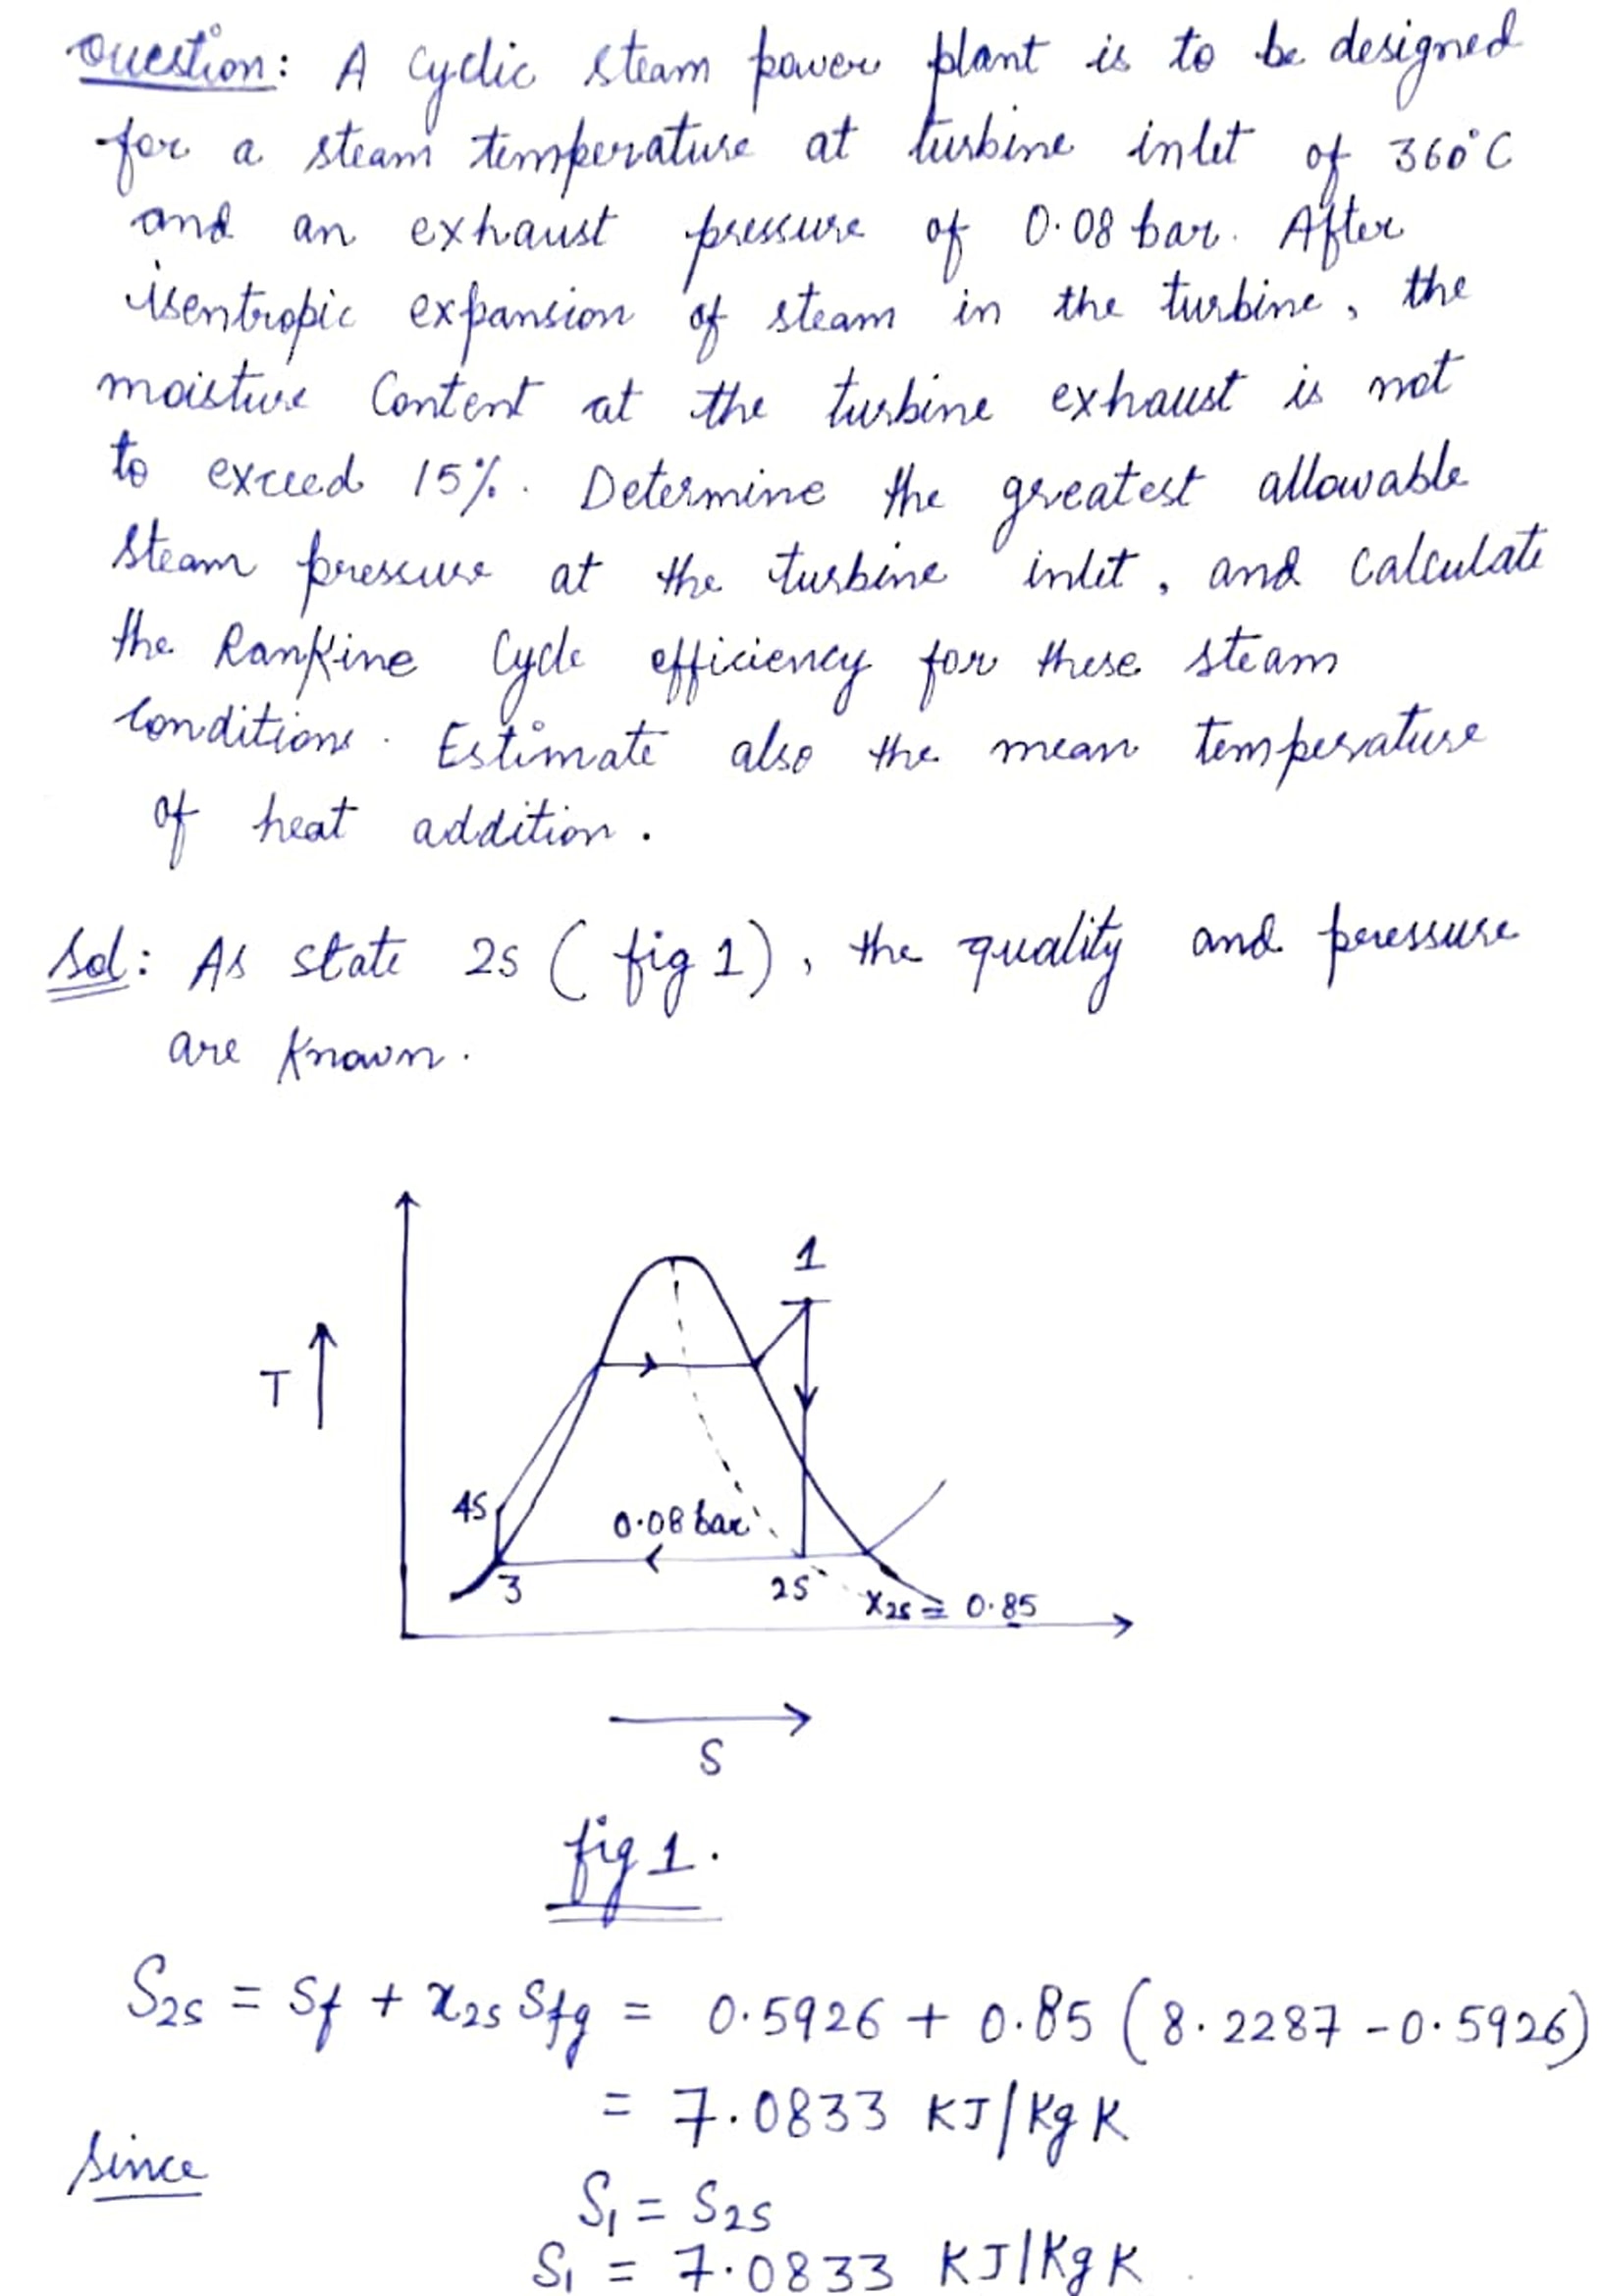 Question: A Cyclic steam power plant is to be designed
for a steam temperature at turbine inlet of 360°C
and an exhaust pressure of 0.08 bar. After
isentropic expansion of steam in the turbine, the
moisture Content at the turbine exhaust is not
to exceed 15%. Determine the greatest allowable
steam pressure at the turbine inlet, and calculate
the Rankine Cycle efficiency for these steam
conditions. Estimate also the mean temperature
of heat addition.
Sol: As state 2s (fig 1), the quality and peressure
are known.
1
T
4S
0.08 bar
3
2S
X2s ≥ 0.85
S
fig 1.
S2s = Sf + x2s Sfg = 0.5926 + 0.85 (8.2287 - 0.5926)
= 7.0833 KJ/Kg K
Since
S1 = S2s
S1 = 7.0833 KJ/Kg K.